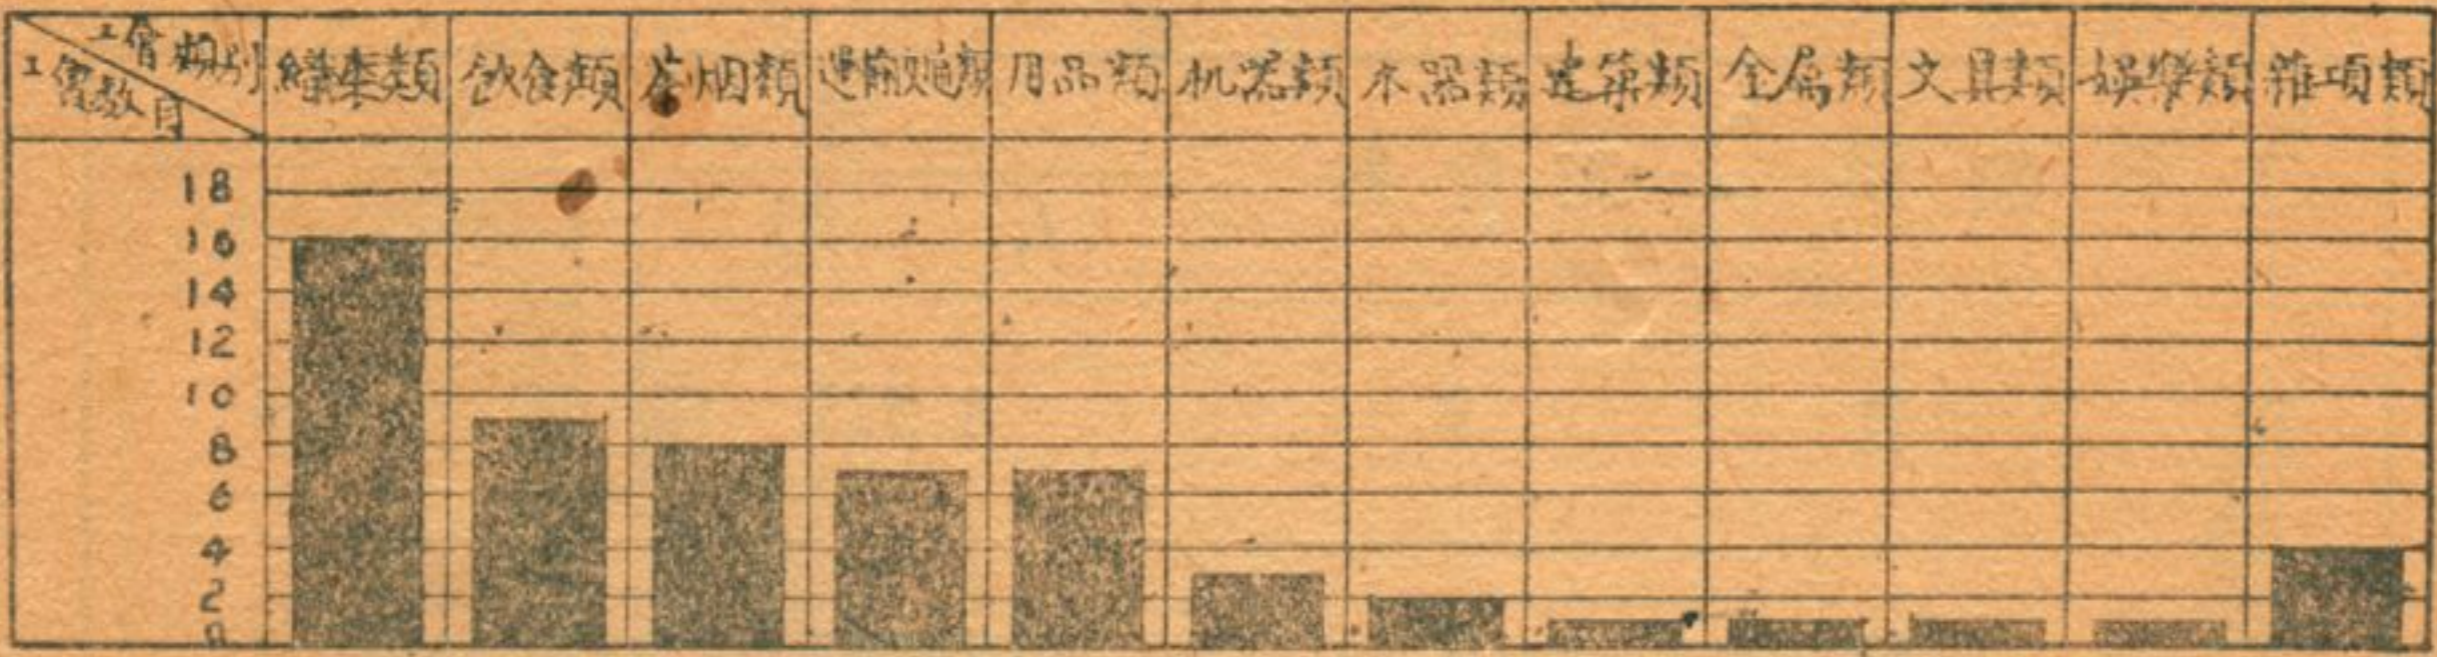 工會類別
工會数目
織造類 飲食類 茶烟類 運輸類 用品類 机器類 木器類 建築類 金属類 文具類 娛樂類 雜項類
18
16
14
12
10
8
6
4
2
0